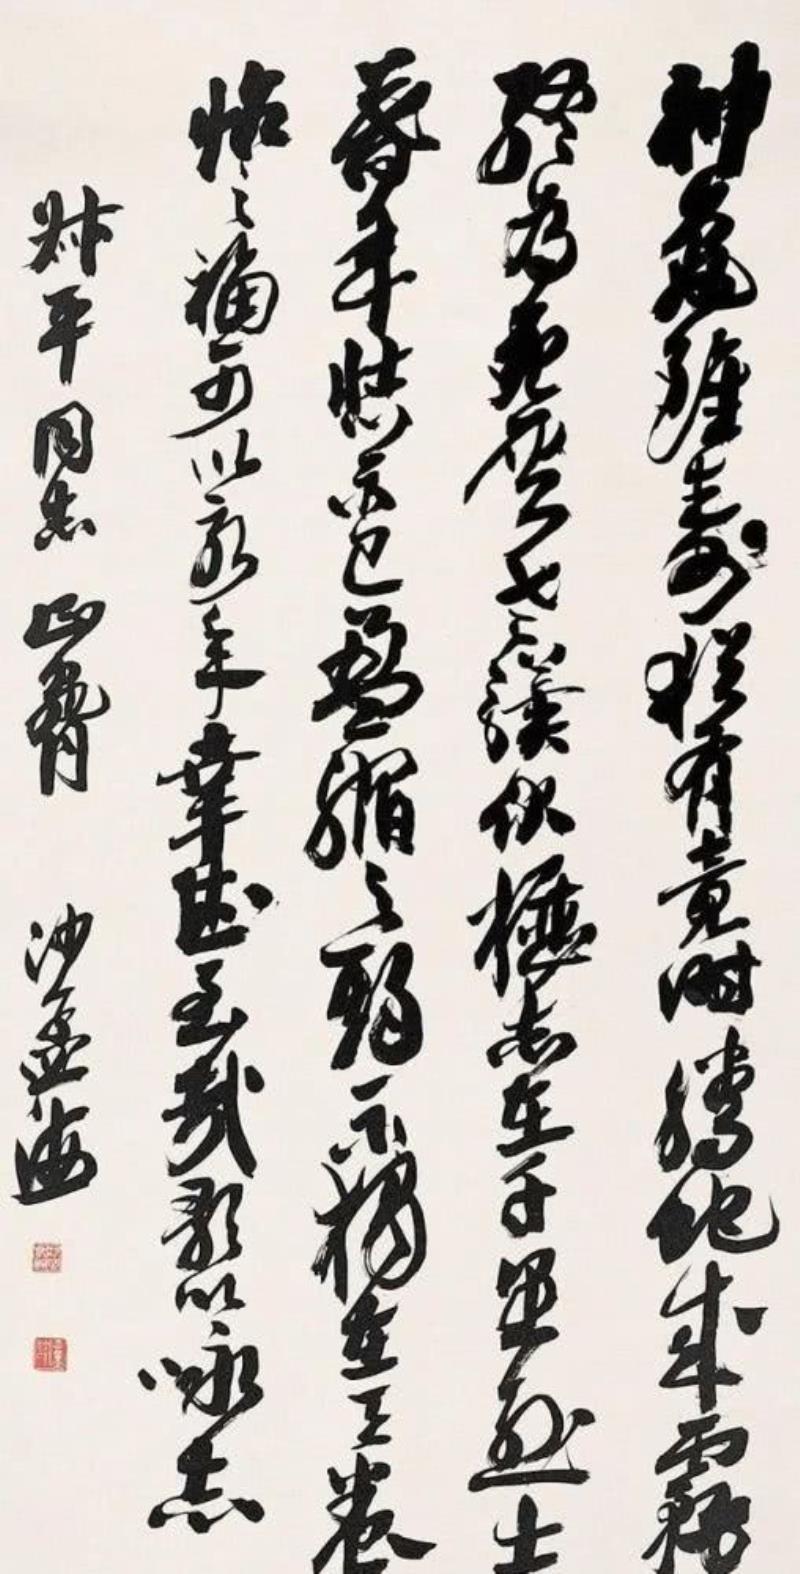 神龜雖壽猶有竟時騰蛇成霧
終為老驥伏櫪志在千里烈士
暮年壯心不已盈縮之期不獨在天養
怡之福可以永年幸甚至哉歌以詠志
叔平同志正
沙孟海